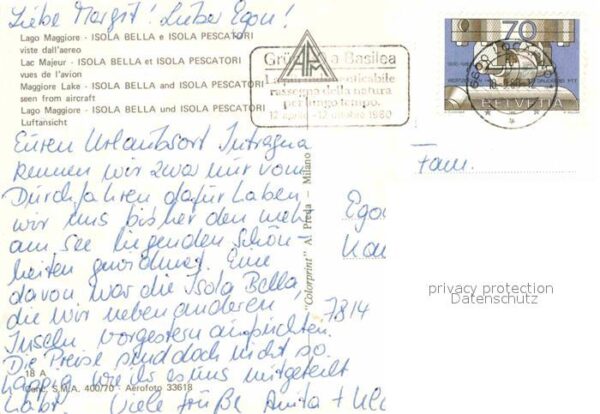 Liebe Margit! Lieber Egon!
Lago Maggiore - ISOLA BELLA e ISOLA PESCATORI
viste dall'aereo
Lac Majeur - ISOLA BELLA et ISOLA PESCATORI
vues de l'avion
Maggiore Lake - ISOLA BELLA and ISOLA PESCATORI
seen from aircraft
Lago Maggiore - ISOLA BELLA und ISOLA PESCATORI
Luftansicht
Basilea
rassegna della natura
per lungo tempo.
12 aprile - 12 ottobre 1980
70
HELVETIA
Euren Urlaubsort Intragna
kennen wir zwar nur vom
Durchfahren dafür haben
wir uns bisher den mehr
am See liegenden Schön-
heiten gewidmet. Eine
davon war die Isola Bella,
die wir neben anderen
Inseln vorgestern aufsuchten.
Die Preise sind doch nicht so
happig wie ihr es uns mitgeteilt
habt. Viele Grüße Anita +
18 A
S.M.A. 400/70 - Aerofoto 33618
"Colorprint" Al Preda - Milano
Fam.
Egon
7814
privacy protection
Datenschutz